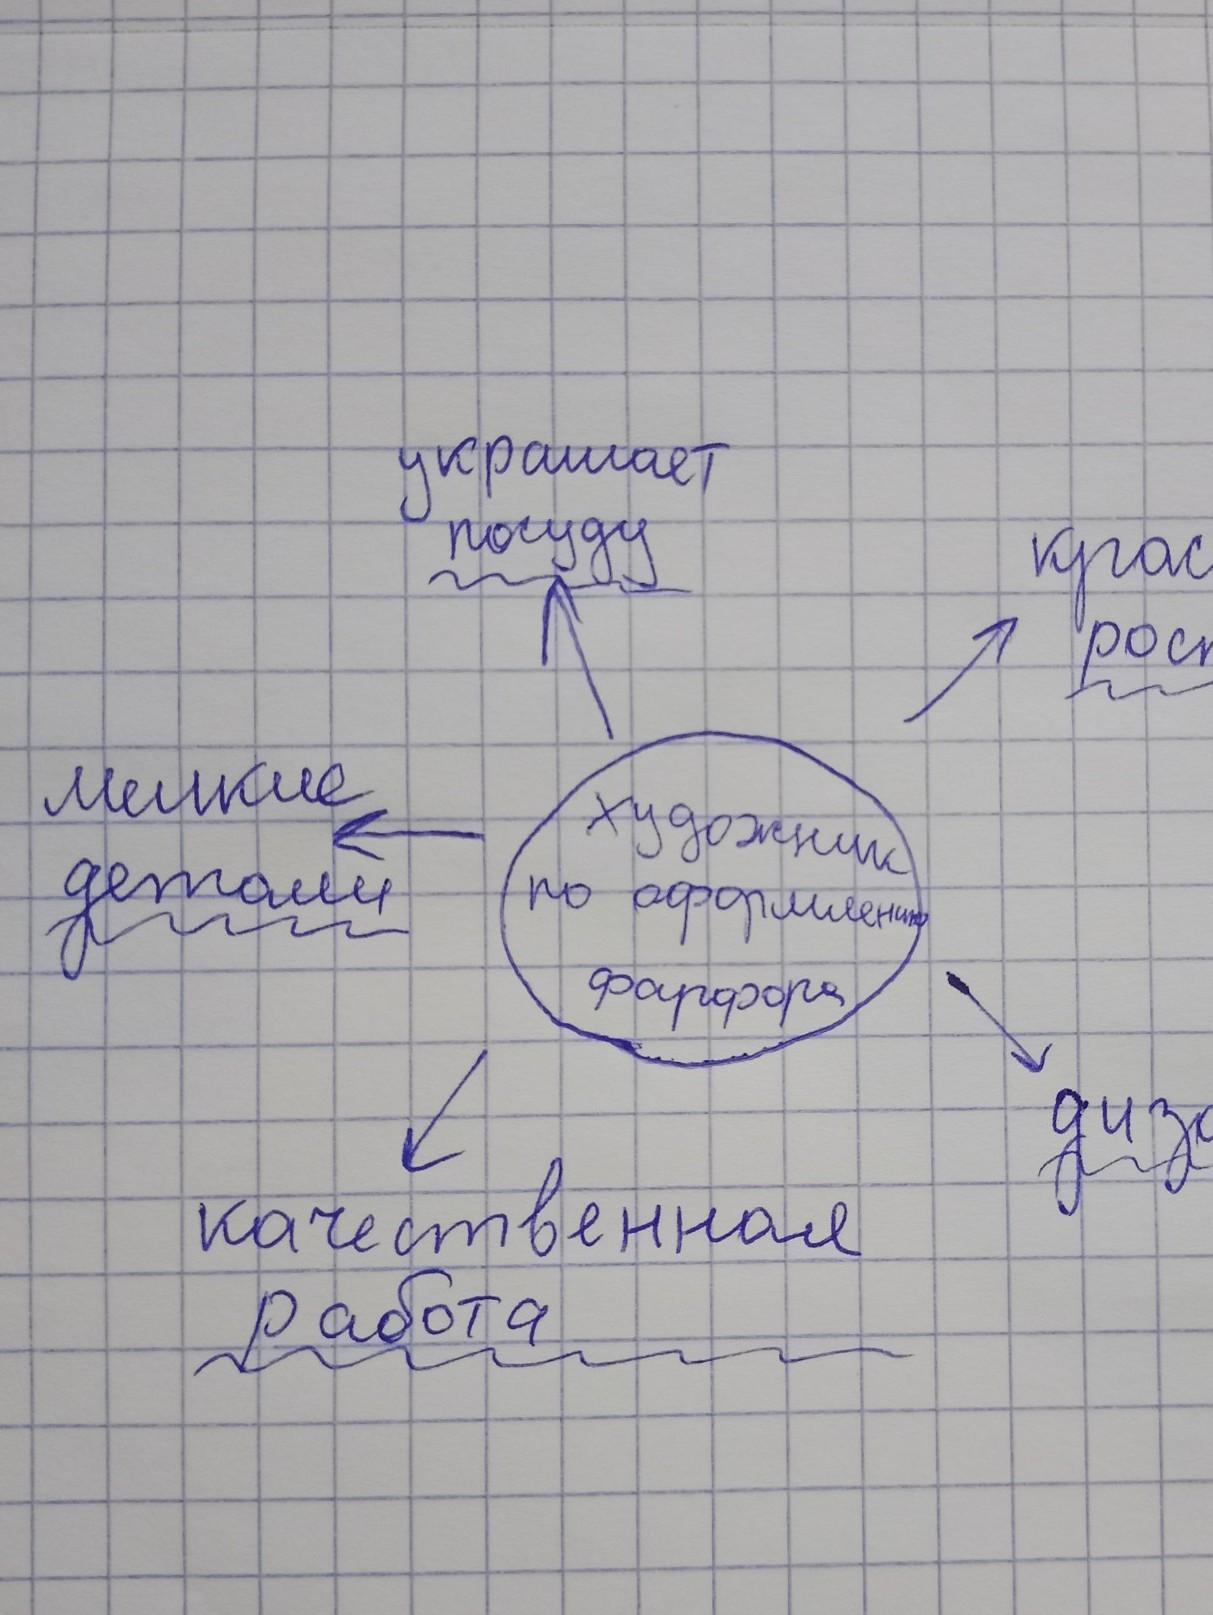 украшает
посуду
мелкие
детали
художник
по оформлению
фарфора
качественная
работа